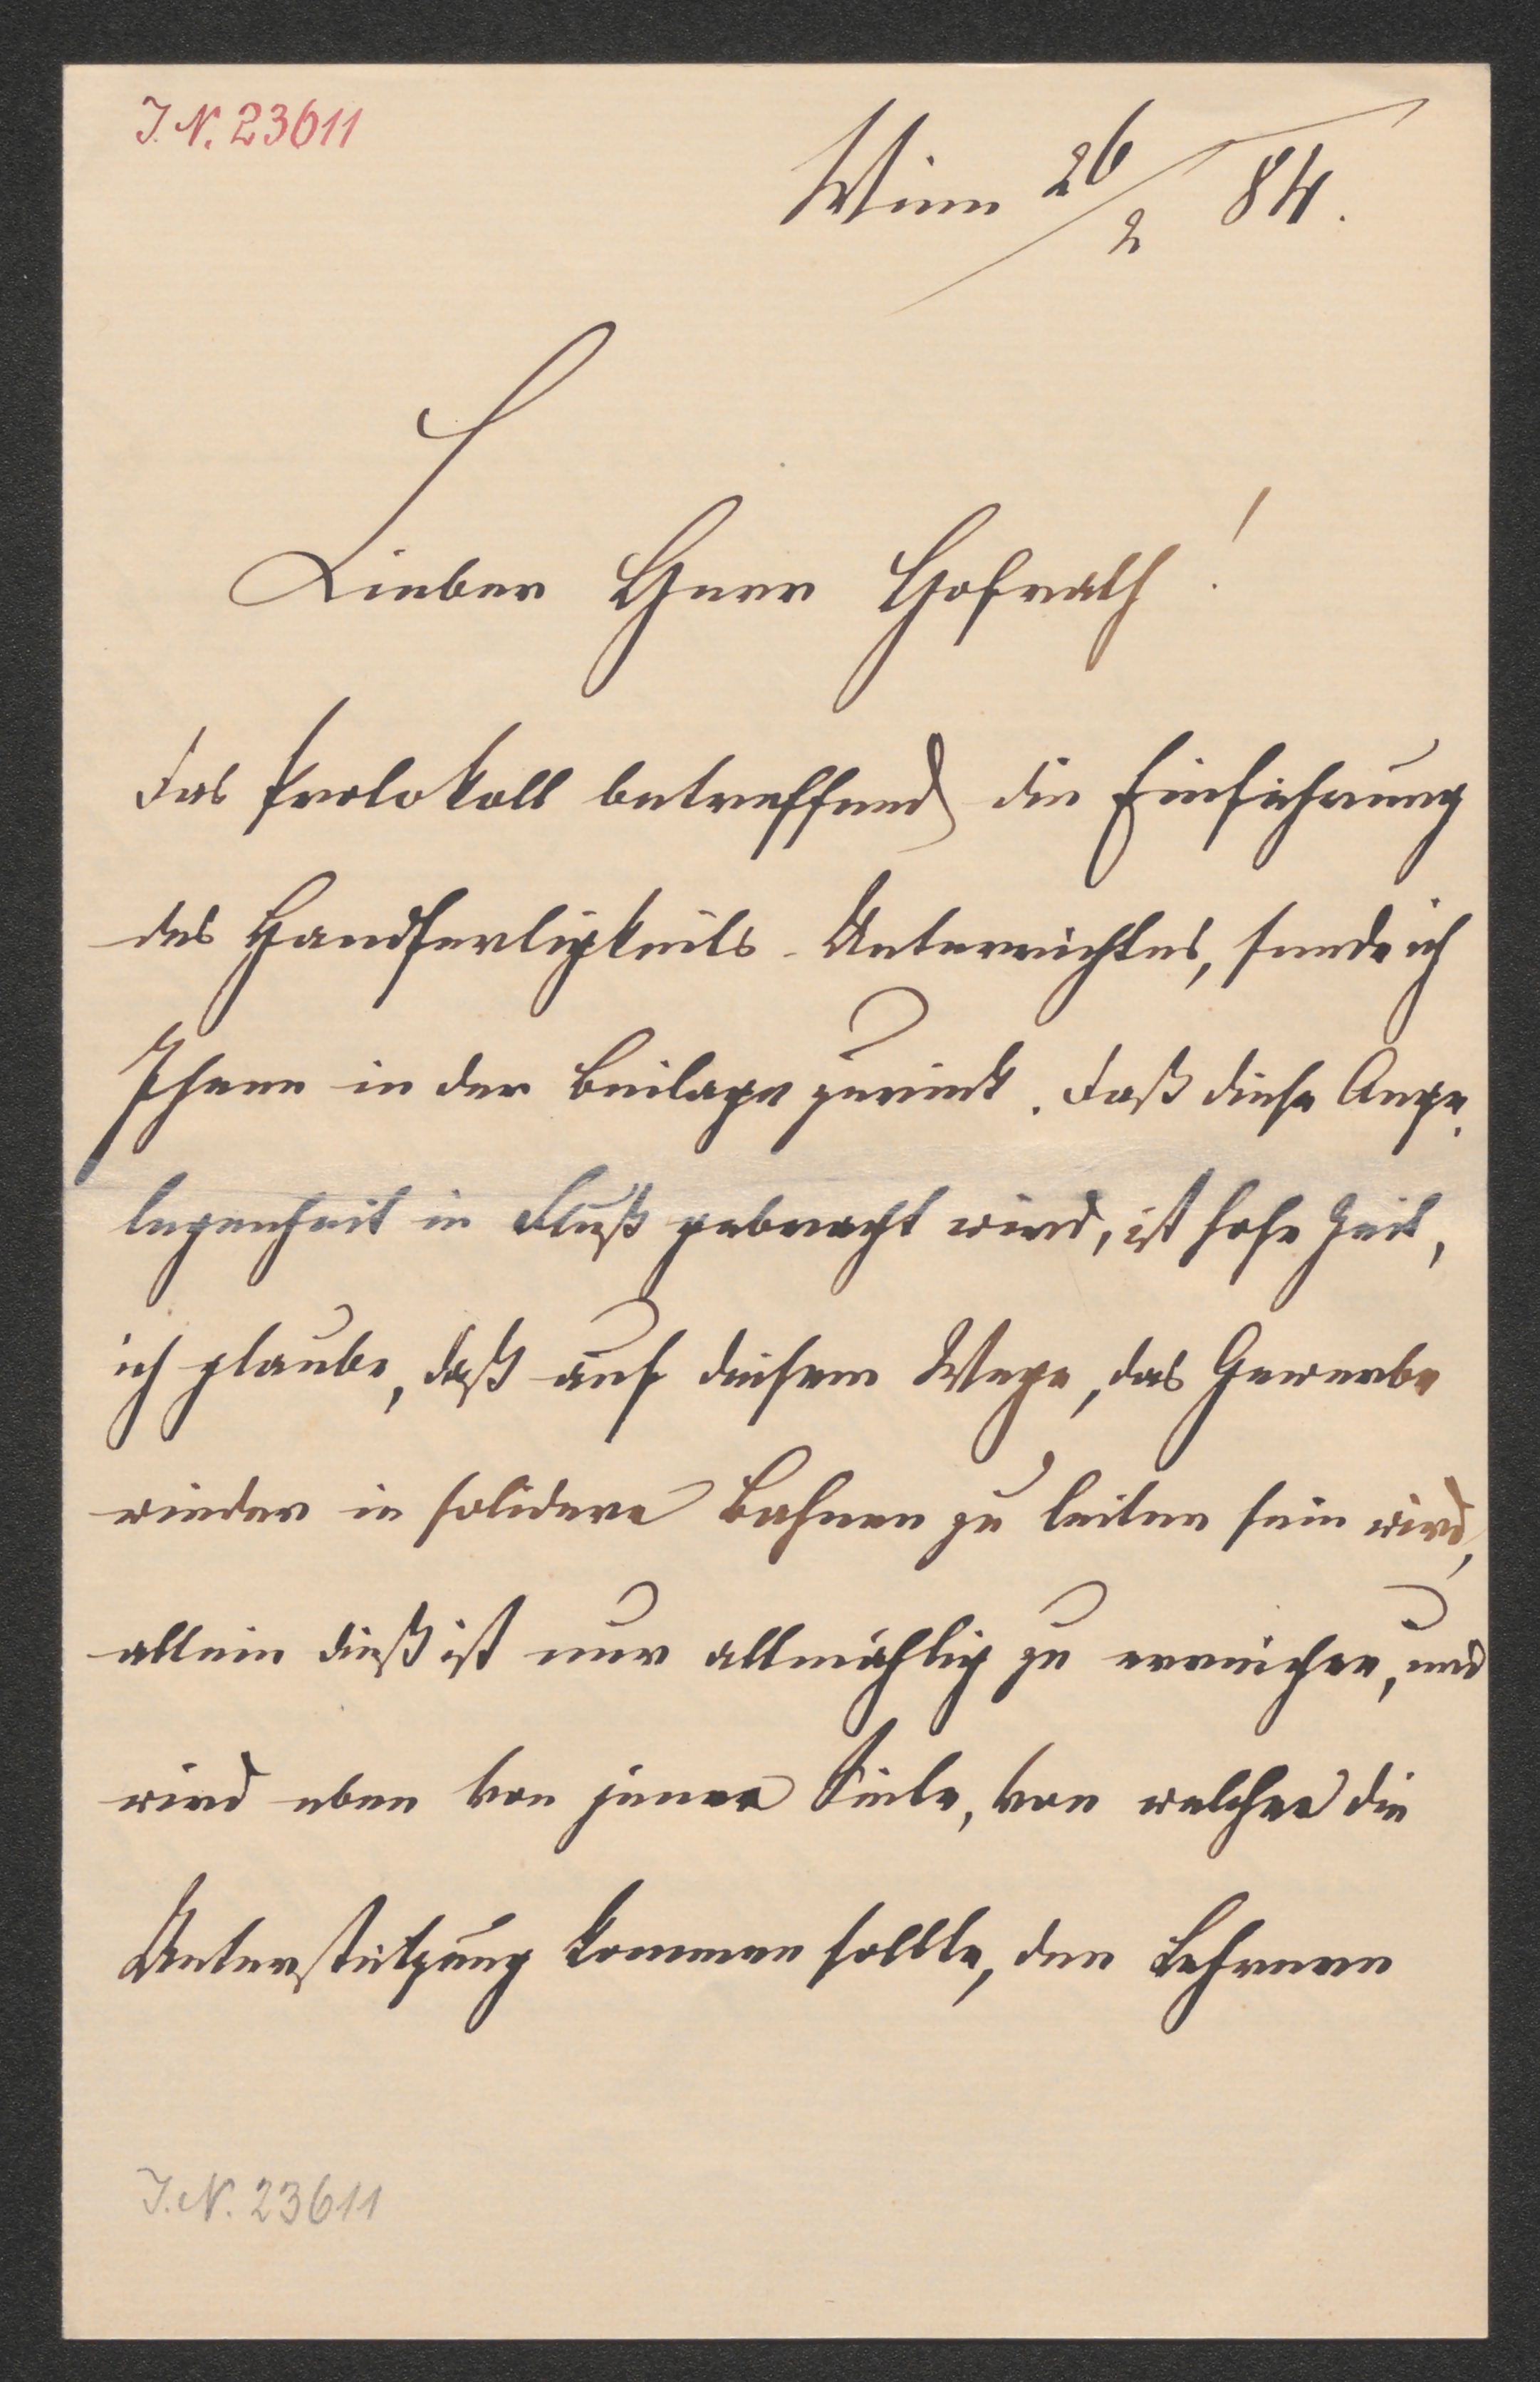 J. N. 23611
Wien 26/2 84.
Lieber Herr Hofrath!
Das Protokoll betreffend die Einführung
des Handfertigkeits-Unterrichtes, sende ich
Ihnen in der Beilage zurück. Daß diese Ange-
legenheit in Fluß gebracht wird, ist hohe Zeit,
ich glaube, daß auf diesem Wege, das Gewerbe
wieder in solidere Bahnen zu leiten sein wird,
allein dieß ist nur allmählig zu erreichen, und
wird eben von jener Seite, von welcher die
Unterstützung kommen sollte, den Lehrern
J. N. 23611